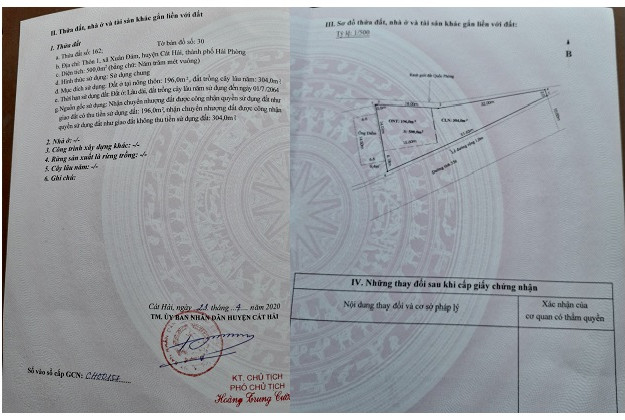 II. Thửa đất, nhà ở và tài sản khác gắn liền với đất
1. Thửa đất
a. Thửa đất số: 162; Tờ bản đồ số: 30
b. Địa chỉ: Thôn 1, xã Xuân Đám, huyện Cát Hải, thành phố Hải Phòng
c. Diện tích: 500,0m² (bằng chữ: Năm trăm mét vuông)
d. Hình thức sử dụng: Sử dụng chung
đ. Mục đích sử dụng: Đất ở tại nông thôn: 196,0m², đất trồng cây lâu năm: 304,0m²
e. Thời hạn sử dụng đất: Đất ở: Lâu dài, đất trồng cây lâu năm sử dụng đến ngày 01/7/2064
g. Nguồn gốc sử dụng: Nhận chuyển nhượng đất được công nhận quyền sử dụng đất như
giao đất có thu tiền sử dụng đất: 196,0m², nhận chuyển nhượng đất được công nhận
quyền sử dụng đất như giao đất không thu tiền sử dụng đất: 304,0m²
2. Nhà ở: -/-
3. Công trình xây dựng khác: -/-
4. Rừng sản xuất là rừng trồng: -/-
5. Cây lâu năm: -/-
6. Ghi chú:
Cát Hải, ngày 23 tháng 4 năm 2020
TM. ỦY BAN NHÂN DÂN HUYỆN CÁT HẢI
KT. CHỦ TỊCH
PHÓ CHỦ TỊCH
Hoàng Trung Cường
Số vào sổ cấp GCN:
III. Sơ đồ thửa đất, nhà ở và tài sản khác gắn liền với đất:
Tỷ lệ 1/500
B
ONT: 196.0m²
CLN: 304.0m²
S: 500,0m²
IV. Những thay đổi sau khi cấp giấy chứng nhận
Nội dung thay đổi và cơ sở pháp lý
Xác nhận của
cơ quan có thẩm quyền